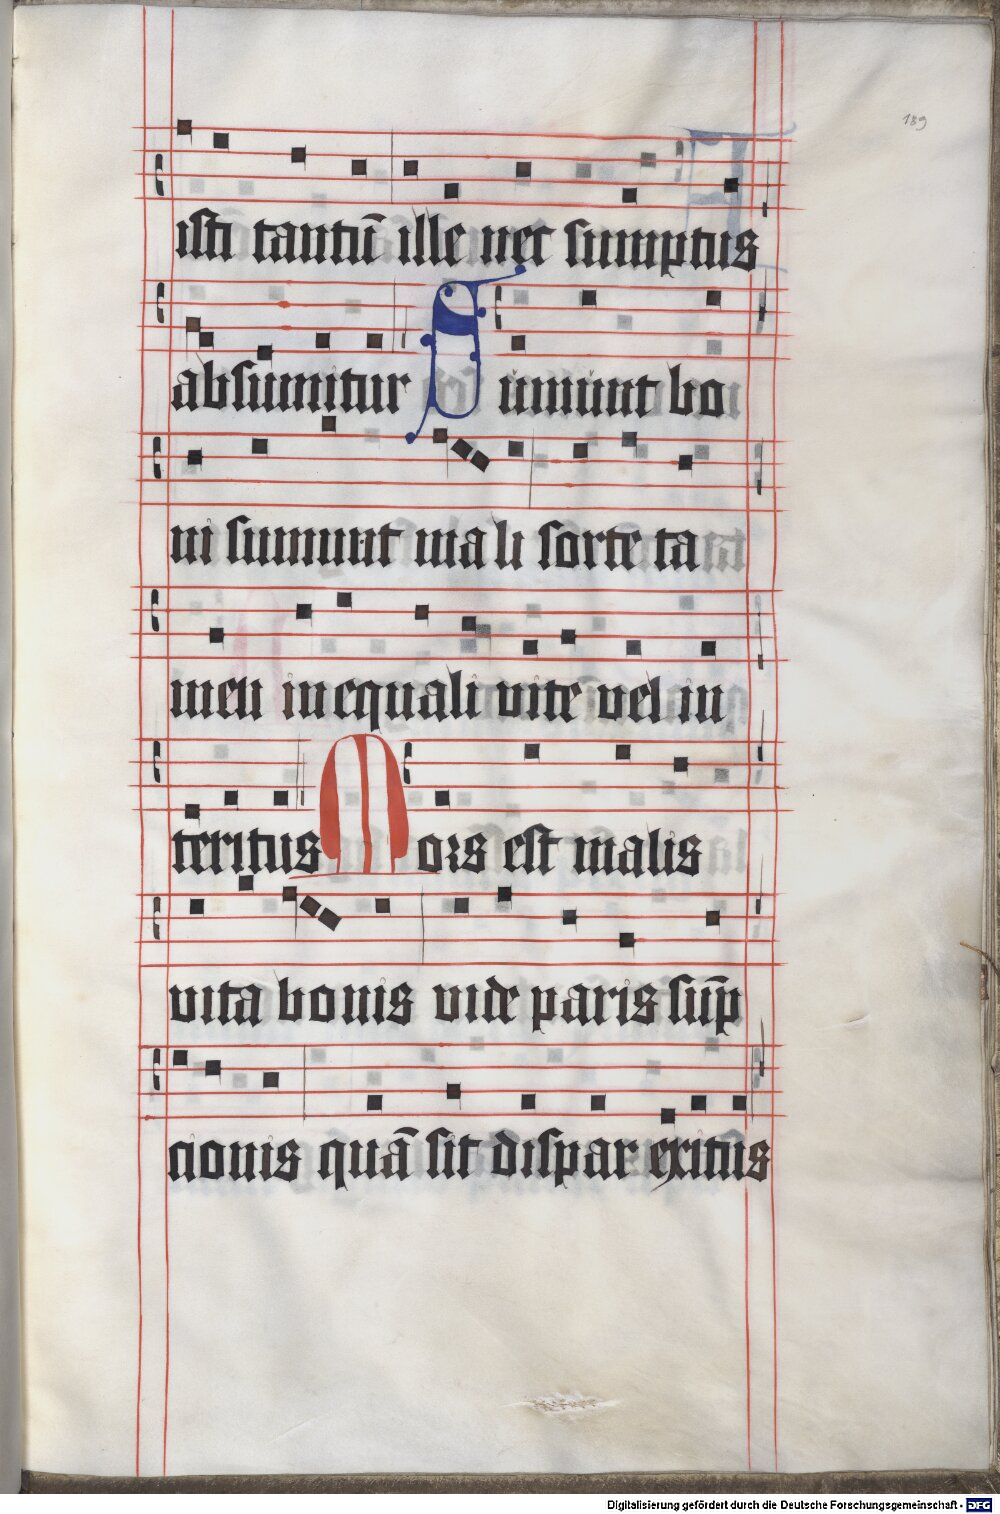 189
isti tantū ille nec sumptus
absumitur Sumunt bo
ni sumunt mali sorte ta
men inequali vite vel in
teritus Mors est malis
vita bonis vide paris sūp
cionis quā sit dispar exitus
Digitalisierung gefördert durch die Deutsche Forschungsgemeinschaft - DFG